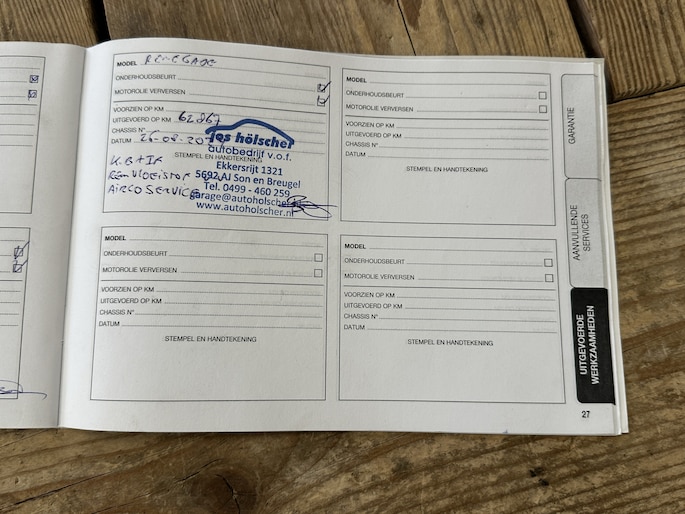 MODEL RENEGADE
ONDERHOUDSBEURT
MOTOROLIE VERVERSEN
VOORZIEN OP KM
UITGEVOERD OP KM 62867
CHASSIS N°
DATUM 26-08-20
STEMPEL EN HANDTEKENING
jos hölscher
autobedrijf v.o.f.
Ekkersrijt 1321
5692 AJ Son en Breugel
Tel. 0499 - 460 259
garage@autoholscher
www.autoholscher.nl
K.B + IF
REMVLOEISTOF
AIRCO SERVICE
MODEL
ONDERHOUDSBEURT
MOTOROLIE VERVERSEN
VOORZIEN OP KM
UITGEVOERD OP KM
CHASSIS N°
DATUM
STEMPEL EN HANDTEKENING
MODEL
ONDERHOUDSBEURT
MOTOROLIE VERVERSEN
VOORZIEN OP KM
UITGEVOERD OP KM
CHASSIS N°
DATUM
STEMPEL EN HANDTEKENING
MODEL
ONDERHOUDSBEURT
MOTOROLIE VERVERSEN
VOORZIEN OP KM
UITGEVOERD OP KM
CHASSIS N°
DATUM
STEMPEL EN HANDTEKENING
GARANTIE
AANVULLENDE
SERVICES
UITGEVOERDE
WERKZAAMHEDEN
27